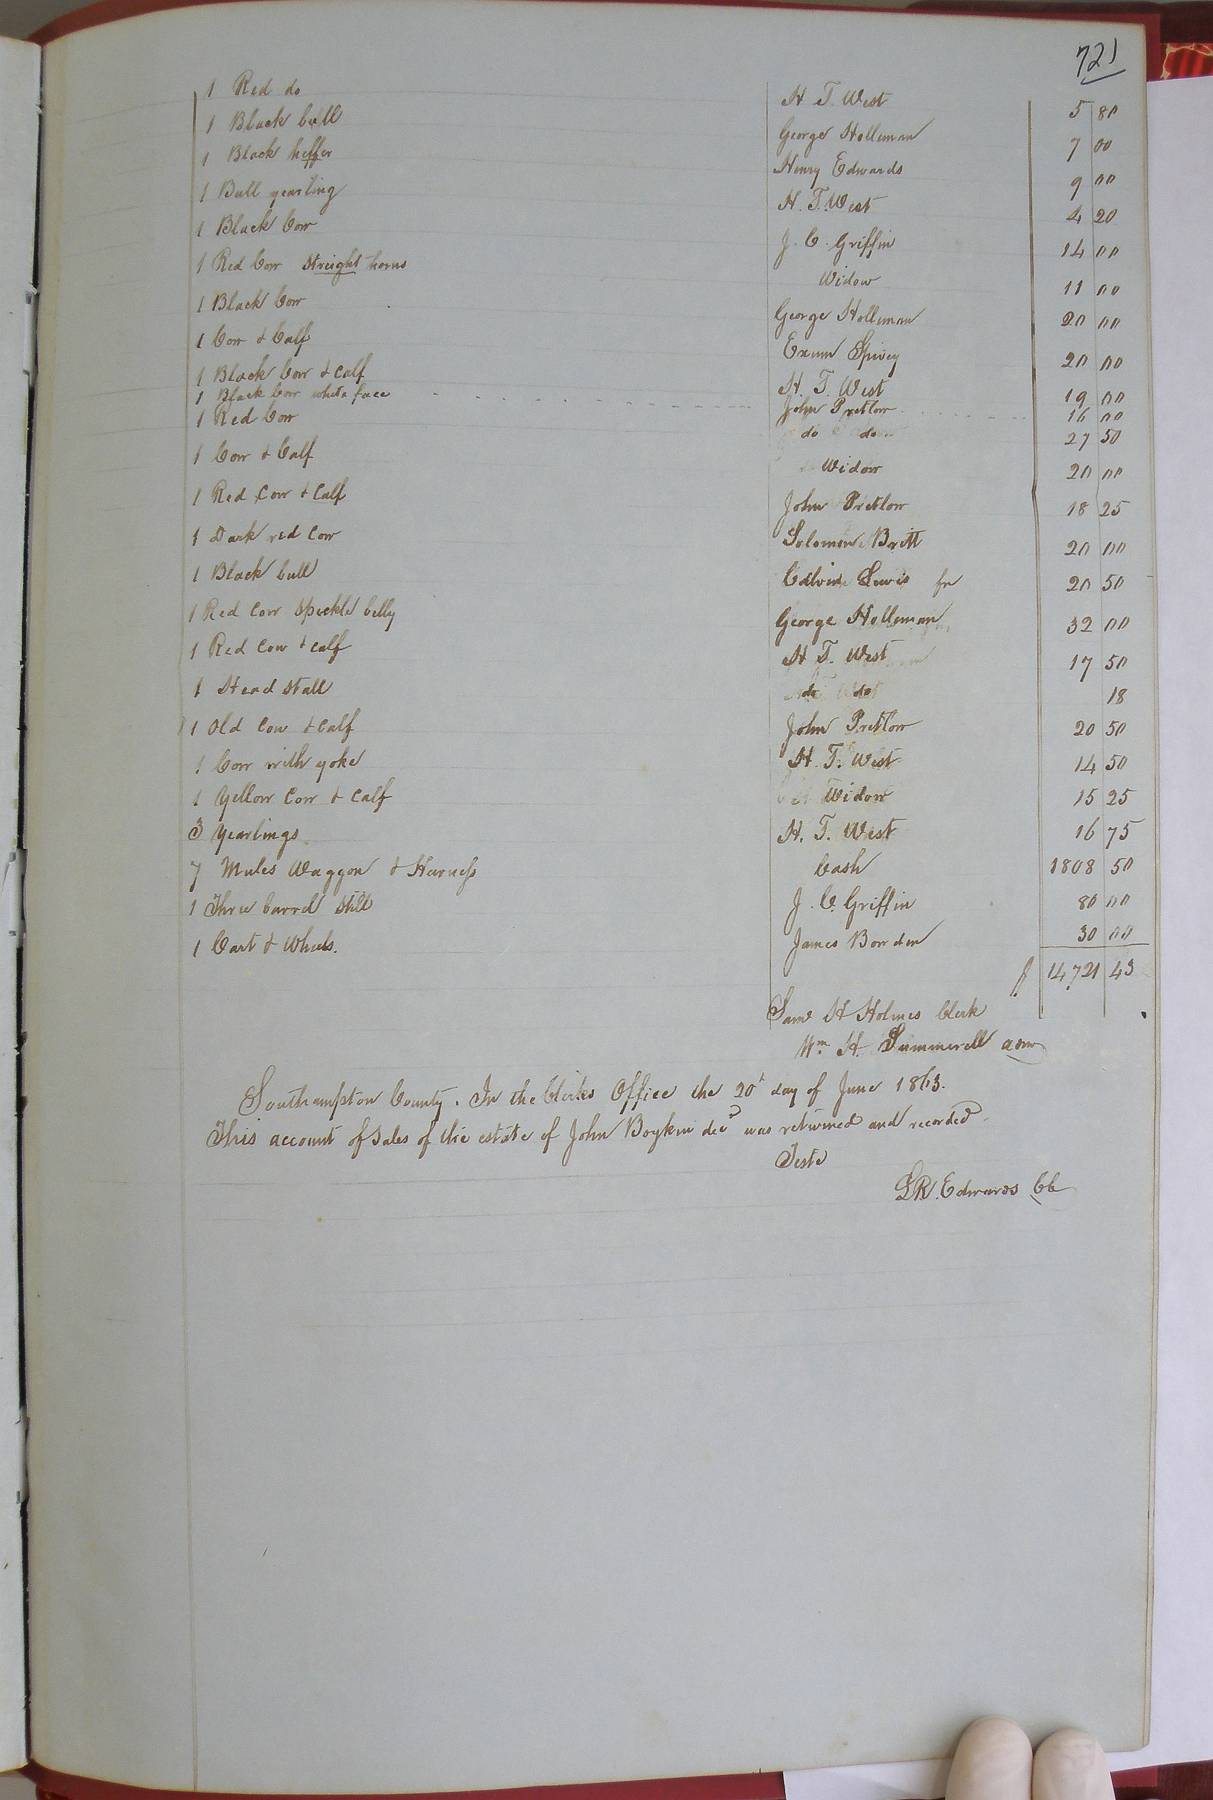 721
1 Red do H. T. West 5 80
1 Black bull George Holleman 7 00
1 Black heffer Henry Edwards 9 00
1 Bull yearling H. T. West 4 20
1 Black Cow J. C. Griffin 14 00
1 Red Cow streight horns Widow 11 00
1 Black Cow George Holleman 20 00
1 Cow & Calf Exum Spivey 20 00
1 Black Cow & Calf H. T. West 19 00
1 Black Cow white face John Pretlow 16 00
1 Red Cow do do 27 50
1 Cow & Calf Widow 20 00
1 Red Cow & Calf John Pretlow 18 25
1 Dark red Cow Solomon Britt 20 00
1 Black bull Edwin Lewis 20 50
1 Red Cow Speckle belly George Holleman 32 00
1 Red Cow & Calf H. T. West 17 50
1 Head Stall do do 18
1 Old Cow & Calf John Pretlow 20 50
1 Cow with yoke H. T. West 14 50
1 Yellow Cow & Calf Widow 15 25
3 Yearlings H. T. West 16 75
7 Mules Waggon & Harness Cash 1808 50
1 Three barrel Still J. C. Griffin 80 00
1 Cart & Wheels. James Bowden 30 00
$ 14721 43
Saml H Holmes Clerk
Wm. H. Summerell adm
Southampton County. In the Clerks Office the 20th day of June 1863.
This account of Sales of the estate of John Boykin decd was returned and recorded.
Teste
LR. Edwards CC